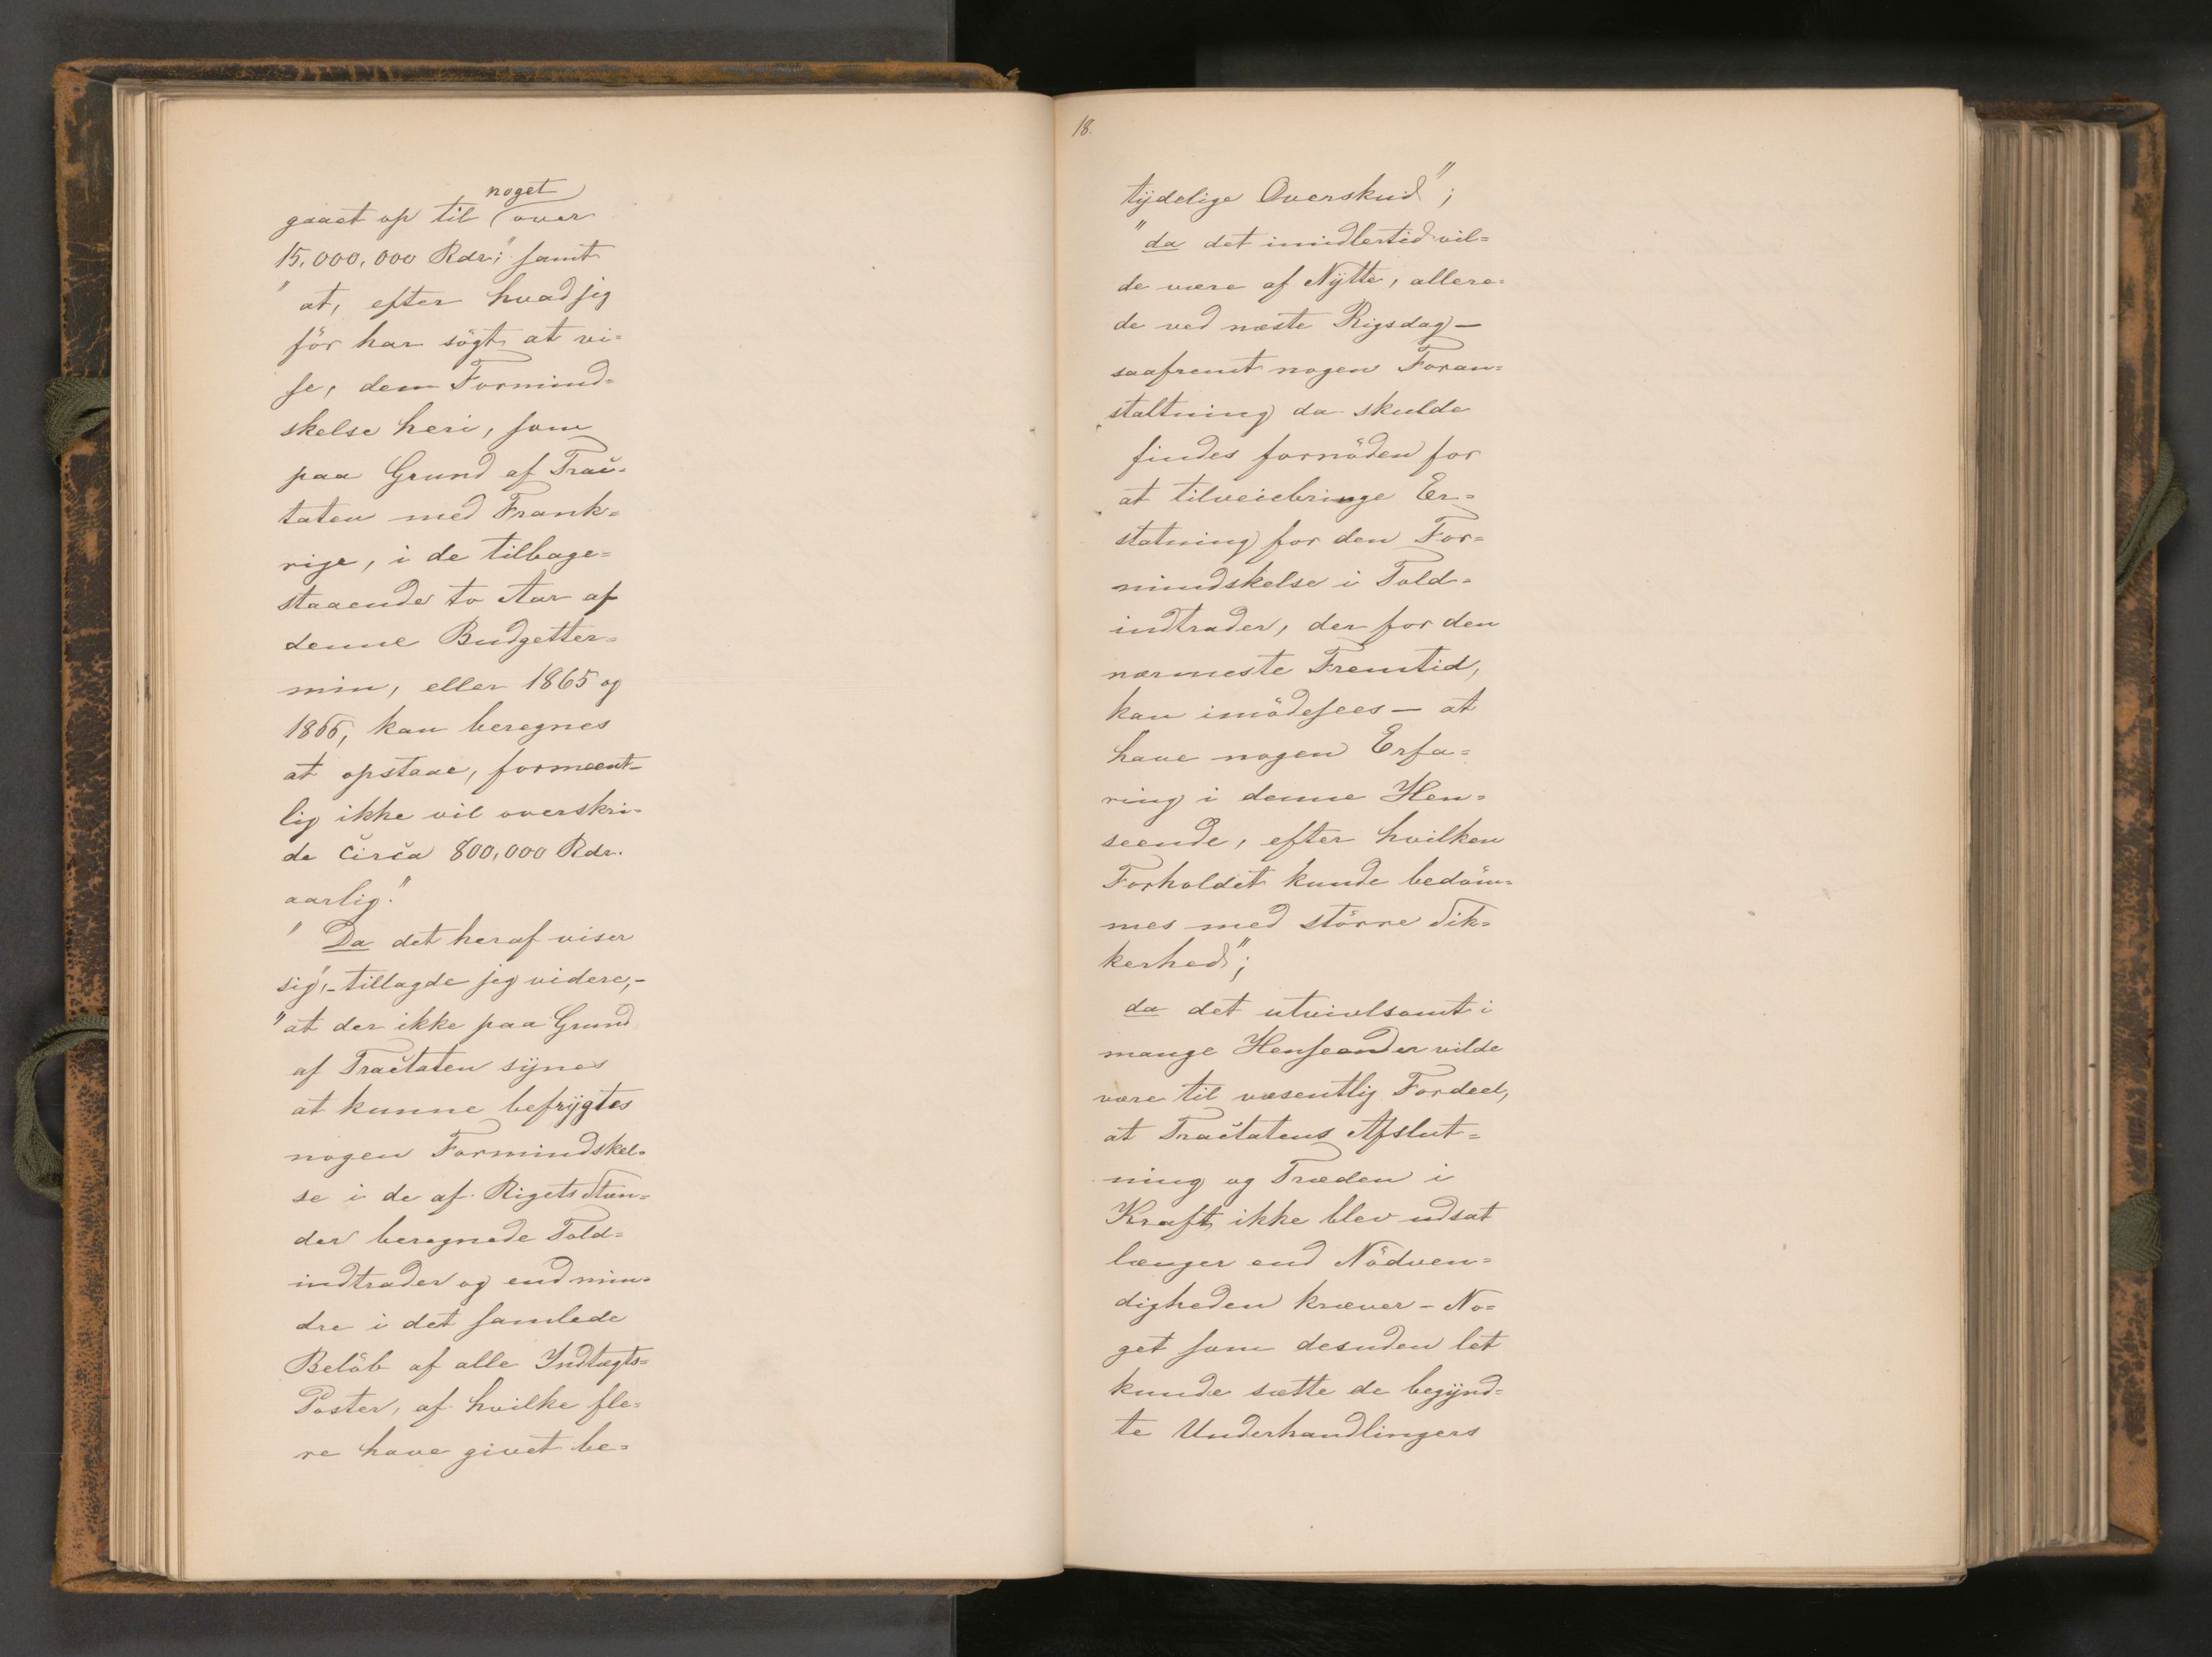 noget
gaaet op til over
15,000,000 Rdr;" samt
"at, efter hvad jeg
för har sögt at vi=
se, dem Formind=
skelse heri, som
paa Grund af Trac=
taten med Frank=
rige, i de tilbage=
staaende to Aar af
denne Budgetter=
min, eller 1865 og
1866, kan beregnes
at opstaae, formeent=
lig ikke vil overskri=
de circa 800,000 Rdr.
aarlig."
"Da det heraf viser
sig", - tillagde jeg videre, -
"at der ikke paa Grund
af Tractaten synes
at kunne befrygtes
nogen Formindskel=
se i de af Rigets Stæn=
der beregnede Told=
indtrader og end min=
dre i det samlede
Belöb af alle Indtægts=
Poster, af hvilke fle=
re have givet be=
18.
tydelige Overskud";
"da det imidlertid vil=
de være af Nytte, allere=
de ved næste Rigsdag —
saafremt nogen Foran=
staltning da skulde
findes fornöden for
at tilveiebringe Er=
statning for den For=
mindskelse i Told=
indtrader, der for den
nærmeste Fremtid,
kan imödesees — at
have nogen Erfa=
ring i denne Hen=
seende, efter hvilken
Forholdet kunde bedöm=
mes med större Sik=
kerhed";
da det utvivlsomt i
mange Henseender vilde
være til væsentlig Fordeel,
at Tractatens Afslut=
ning og Træden i
Kraft ikke blev udsat
længer end Nödven=
digheden kræver - No=
get som desuden let
kunde sætte de begynd=
te Underhandlingers